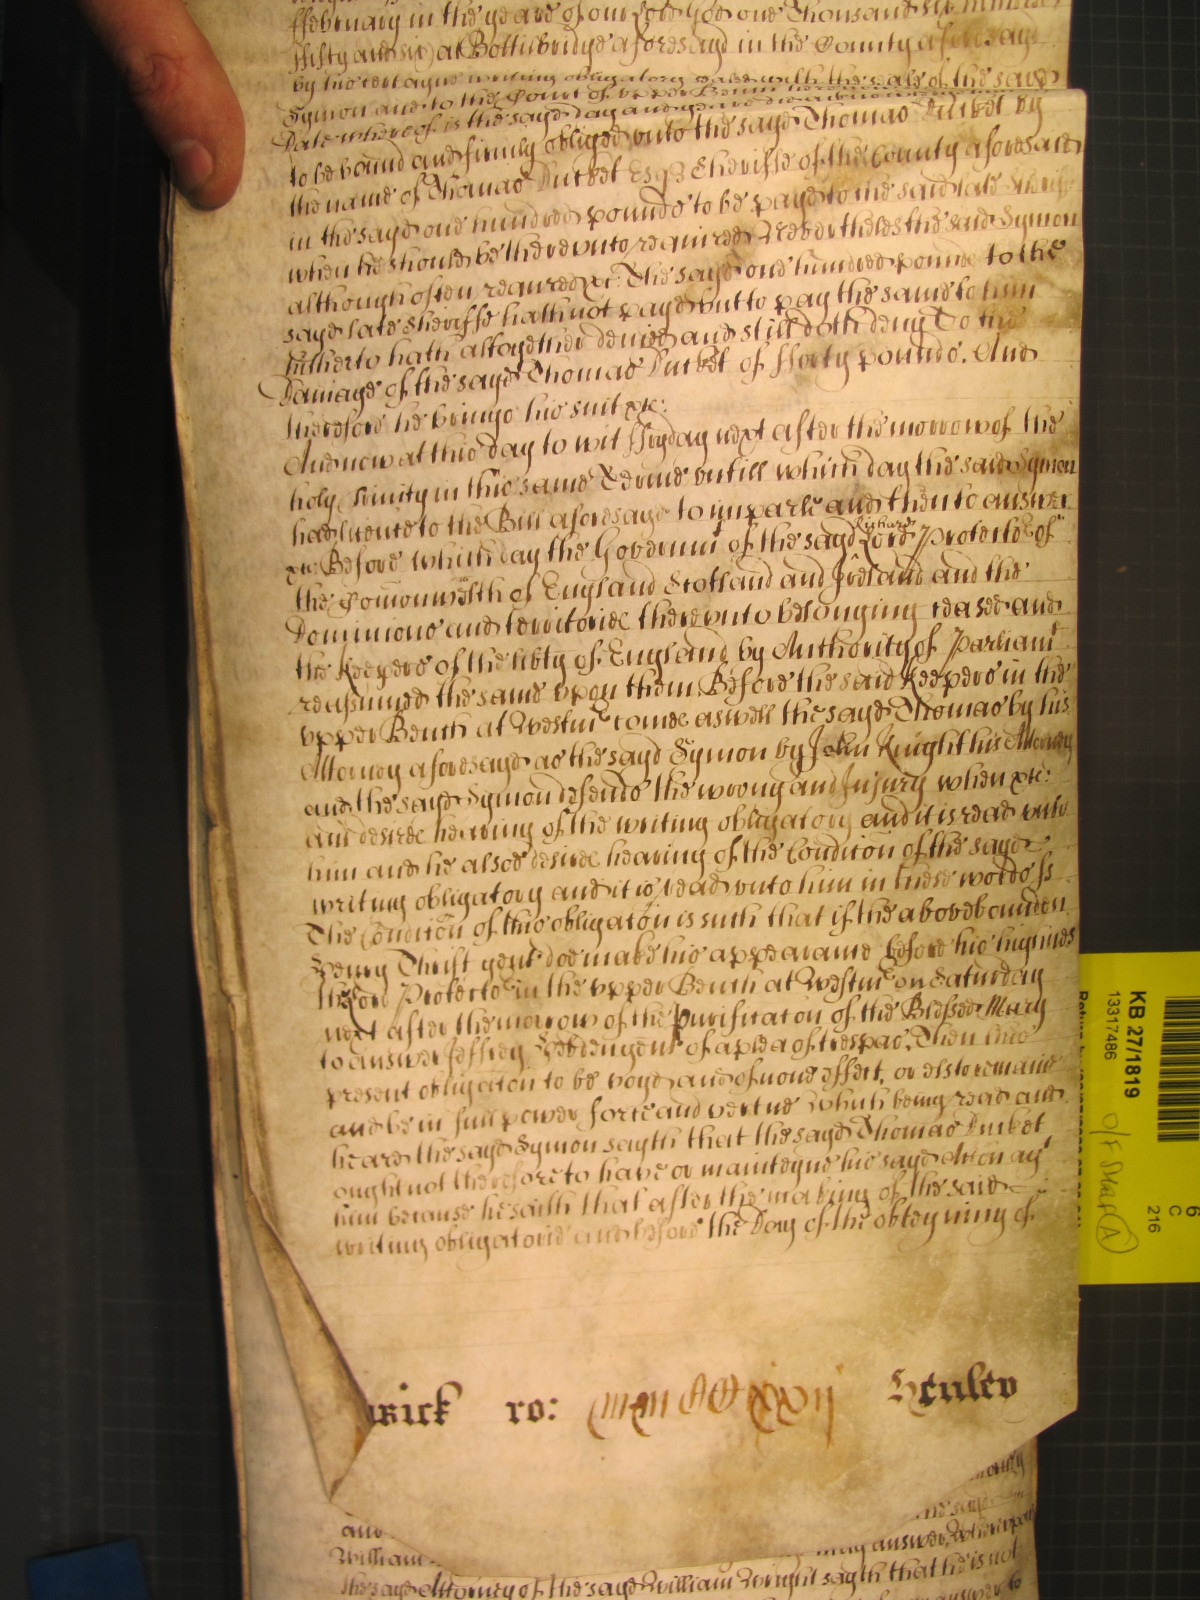 ffebruary in the yeare of our Lord God one Thousand six hundred
ffifty and six at Bottlebridge aforesayd in the County aforesayd
by his certayne writing obligatory seald with the seale of the said
Symon and to the Court of upper Bench here
Date whereof is the sayd day and yeare
to be bound and firmly obliged unto the sayd Thomas Ducket by
the name of Thomas Ducket Esqr Sheriffe of the County aforesaid
in the sayd one hundred pounds to be payd to the said late Sheriffe
when he should be thereunto required Neverthelesse the said Symon
although often required &c: The sayd one hundred pounds to the
sayd late Sheriffe hath not payd but to pay the same to him
hitherto hath altogether denied and still doth deny To the
Damage of the sayd Thomas Ducket of fforty pounds. And
therefore he brings his suit &c:
And now at this day to wit ffryday next after the morrow of the
holy Trinity in this same Terme untill which day the said Symon
had licence to the Bill aforesayd to imparle and then to answer
&c: Before which day the Governmt of the sayd Richard Lord Protector of
the Comonwealth of England Scotland and Ireland and the
Dominions and territories thereunto belonging ceased and
the Keepers of the libty of England by Authority of Parliamt
reassumed the same upon them Before the said Keepers in the
upper Bench at Westmr come aswell the sayd Thomas by his
Attorney aforesayd as the sayd Symon by John Knight his Attorney
and the sayd Symon defends the wrong and Injury when &c:
and desires hearing of the writing obligatory and it is read unto
him and he alsoe desires hearing of the Conditon of the sayd
writing obligatory and it is read unto him in these words ss
The Conditon of this obligaton is such that if the abovebounden
Henry Thrift gent doe make his appearance before his highnes
the Lord Protector in the upper Bench at Westmr on Saturday
next after the morrow of the Purificaton of the Blessed Mary
to answer Jeffrey gent of a plea of trespas. Then this
present obligaton to be voyd and of none effect, or els to remaine
and be in full power force and vertue Which being read and
heard the sayd Symon sayth that the sayd Thomas Ducket
ought not therefore to have or mainteyne his sayd Acton agt
him because he saith that after the making of the said
writing obligatorie and before the Day of the obteyning of
wick ro: Henley
and
William may answer, Whereupon
the sayd Attorney of the sayd William Wright sayth that he is not
KB 27/1819
13317486
6
C
216
A